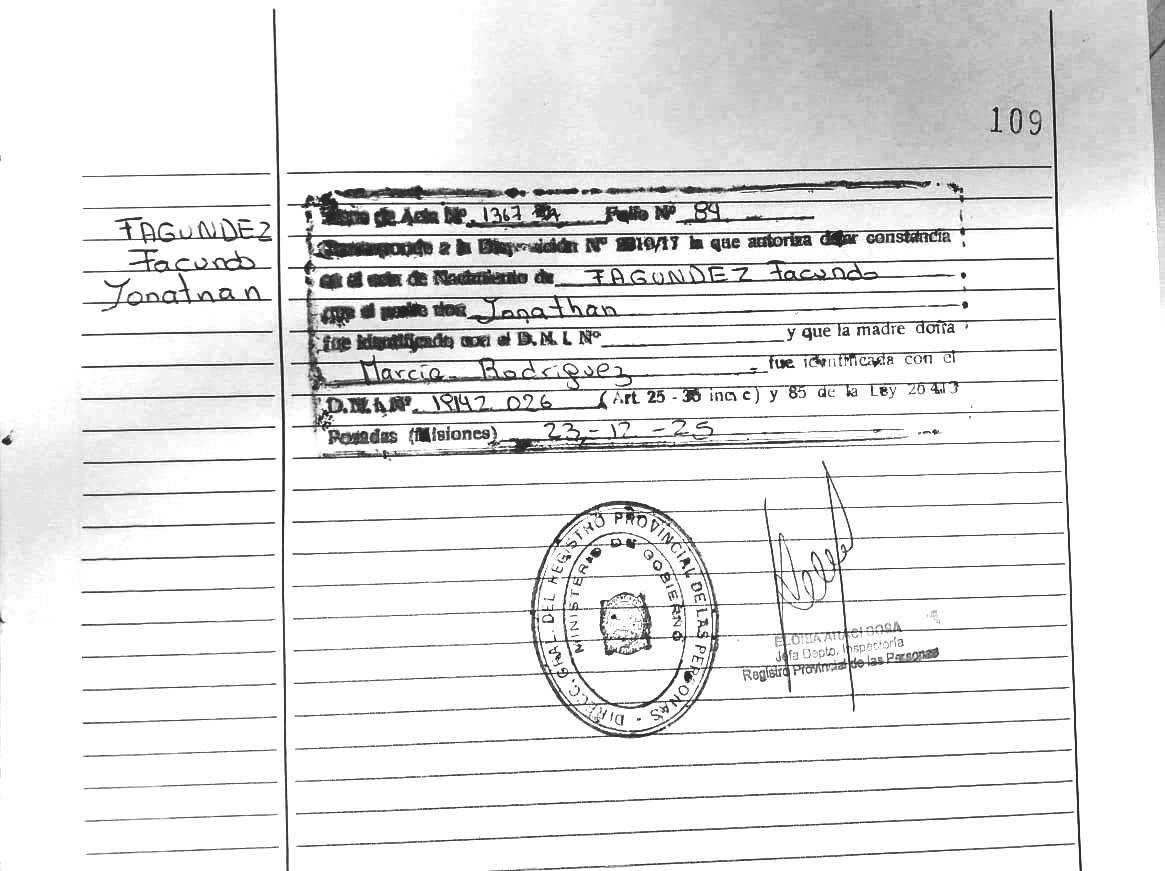 109
FAGUNDEZ
Facundo
Jonathan
de Acta Nº 1367 Folio Nº 84
Corresponde a la Disposición Nº 2810/17 la que autoriza dejar constancia
en el acta de Nacimiento de FAGUNDEZ Facundo
que el padre don Jonathan
fue identificado con el D.N.I. Nº y que la madre doña
Marcia Rodriguez fue identificada con el
D.N.I. Nº 19142.026 (Art. 25 - 36 inc. c) y 85 de la Ley 26413
Posadas (Misiones) 23-12-25
DIRECC. GRAL. DEL REGISTRO PROVINCIAL DE LAS PERSONAS -
MINISTERIO DE GOBIERNO
ARACI SOSA
Jefa Depto. Inspectoría
Registro Provincial de las Personas